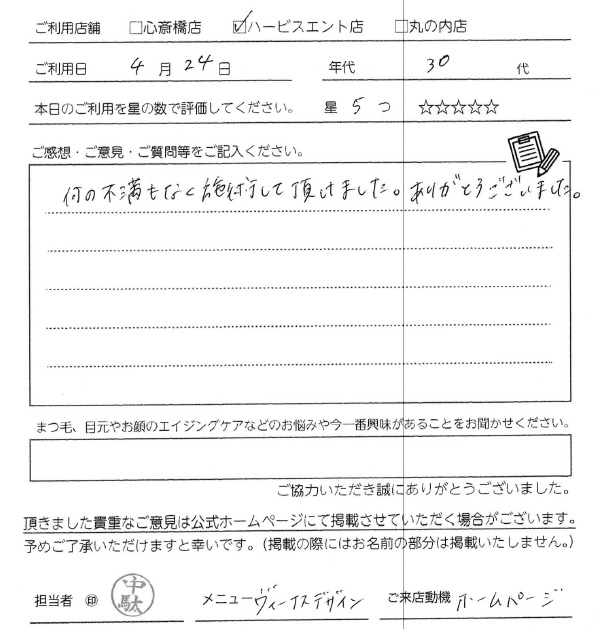 ご利用店舗 □心斎橋店 ☑ハービスエント店 □丸の内店
ご利用日 4 月 24 日 年代 30 代
本日のご利用を星の数で評価してください。 星 5 つ ☆☆☆☆☆
ご感想・ご意見・ご質問等をご記入ください。
何の不満もなく施術して頂けました。ありがとうございました。
まつ毛、目元やお顔のエイジングケアなどのお悩みや今一番興味があることをお聞かせください。
ご協力いただき誠にありがとうございました。
頂きました貴重なご意見は公式ホームページにて掲載させていただく場合がございます。
予めご了承いただけますと幸いです。（掲載の際にはお名前の部分は掲載いたしません。）
担当者 ㊞ 中駄 メニュー ヴィーナスデザイン ご来店動機 ホームページ